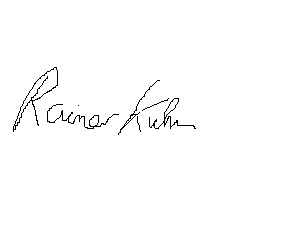 Rainer Kuhn